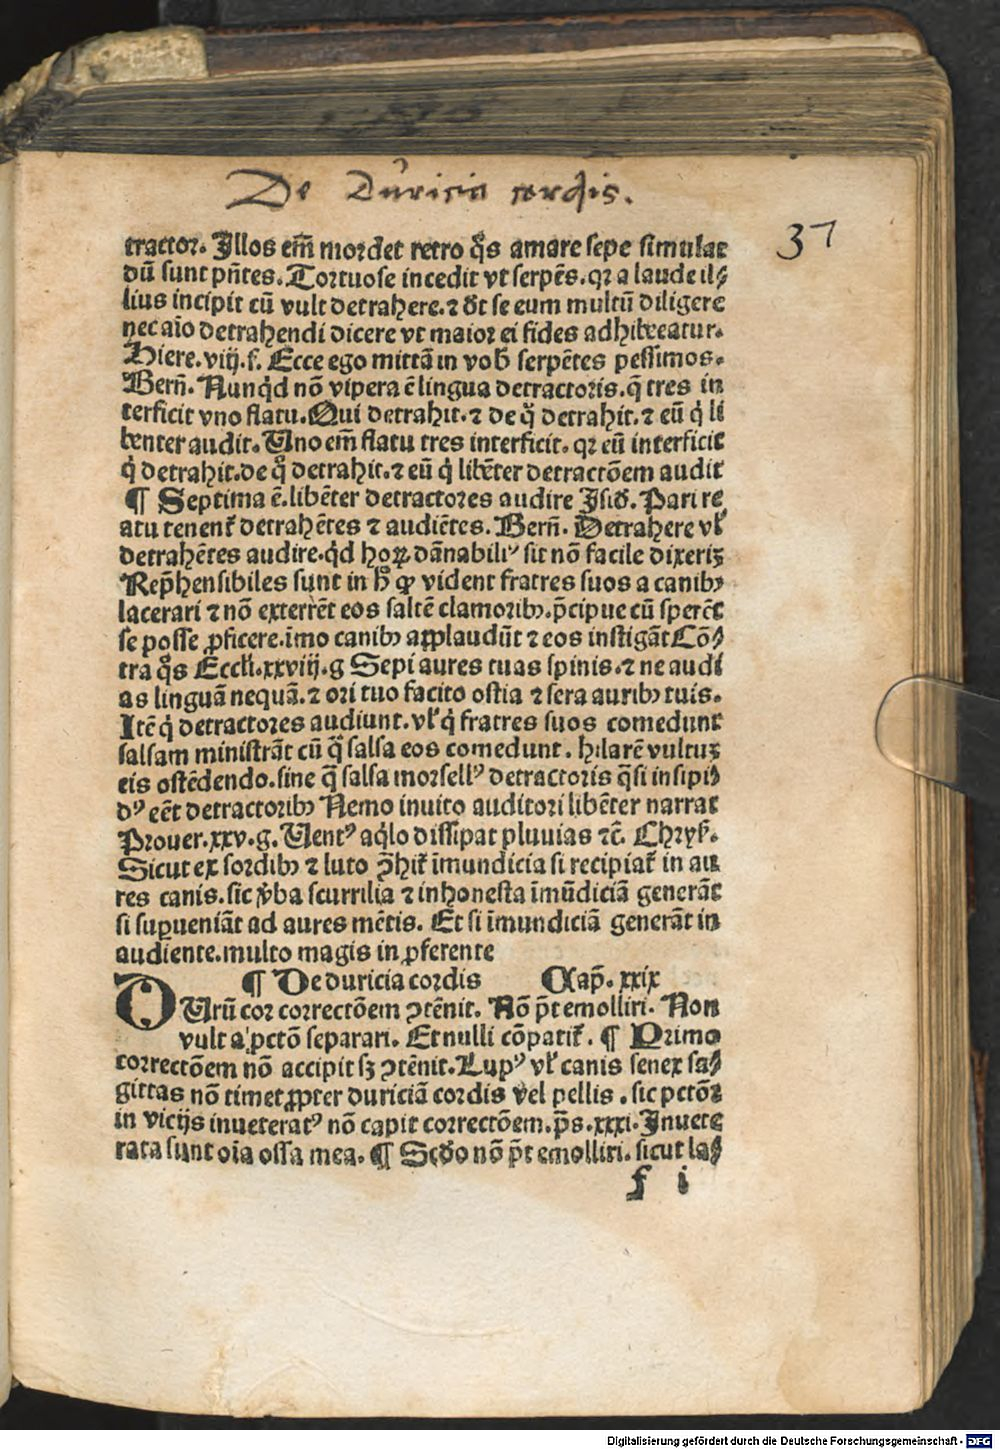 De Duricia cordis.
37
tractor. Illos em̄ mordet retro q̊s amare sepe simulat
dū sunt pn̄tes. Tortuose incedit vt serpēs. qꝛ a laude il⸗
lius incipit cū vult detrahere. ⁊ dt̄ se eum multū diligere
nec aīo detrahendi dicere vt maior ei fides adhibeatur.
Hiere. viij. f. Ecce ego mittā in vob̄ serpētes pessimos.
Bern̄. Nunqd̓ nō vipera ē lingua detractoris. q̄ tres in
terficit vno flatu. Qui detrahit. ⁊ de q̊ detrahit. ⁊ eū q̓ li
benter audit. Uno em̄ flatu tres interficit. qꝛ eū interficit
q̓ detrahit. de q̊ detrahit. ⁊ eū q̓ libēter detractōem audit
¶ Septima ē. libēter detractores audire Isid̄. Pari re
atu tenent᷑ detrahētes ⁊ audiētes. Bern̄. Detrahere vl̓
detrahētes audire. qd̓ hoꝝ dānabiliꝰ sit nō facile dixeriꝫ
Rep̄hensibiles sunt in h̊ ꝙ vident fratres suos a canibꝫ
lacerari ⁊ nō exterrēt eos saltē clamoribꝫ. p̄cipue cū sperēt
se posse ꝓficere. īmo canibꝫ applaudūt ⁊ eos instigāt Cō⸗
tra q̊s Eccli. xxviij. g Sepi aures tuas spinis. ⁊ ne audi
as linguā nequā. ⁊ ori tuo facito ostia ⁊ sera auribꝫ tuis.
Itē q̓ detractores audiunt. vl̓ q̓ fratres suos comedunt
salsam ministrāt cū q̄ salsa eos comedunt. hilarē vultuꝫ
eis ostēdendo. sine q̄ salsa morsellꝰ detractoris q̄si insipi⸗
dꝰ eēt detractoribꝫ Nemo inuito auditori libēter narrat
Prouer. xxv. g. Uentꝰ aq̓lo dissipat pluuias ⁊c̄. Chrys̓.
Sicut ex sordibꝫ ⁊ luto ꝓhit᷑ īmundicia si recipiat᷑ in au
res canis. sic v̓ba scurrilia ⁊ inhonesta īmūdiciā generāt
si suꝑueniāt ad aures mētis. Et si īmundiciā generāt in
audiente. multo magis in ꝓferente
¶ De duricia cordis Cap̄. xxix
DUrū cor correctōem ꝯtēnit. Nō pt̄ emolliri. Non
vult a pctō separari. Et nulli cōpatit᷑. ¶ Primo
correctōem nō accipit sꝫ ꝯtēnit. Lupꝰ vl̓ canis senex sa⸗
gittas nō timet ꝓpter duriciā cordis vel pellis. sic pctōꝛ
in vicijs inueteratꝰ nō capit correctōem. p̄s. xxxi. Inuete
rata sunt oīa ossa mea. ¶ Scd̄o nō pt̄ emolliri. sicut la⸗
f i
Digitalisierung gefördert durch die Deutsche Forschungsgemeinschaft - DFG